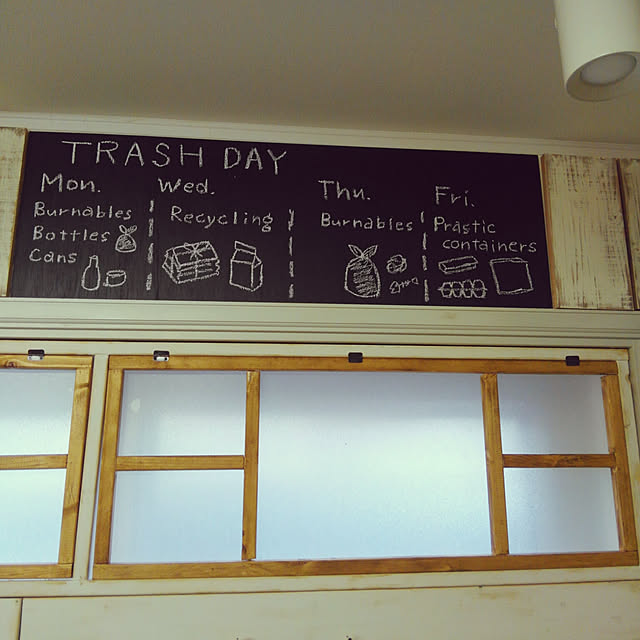 TRASH DAY
Mon.
Burnables
Bottles
Cans
Wed.
Recycling
Thu.
Burnables
Fri.
Prastic
containers